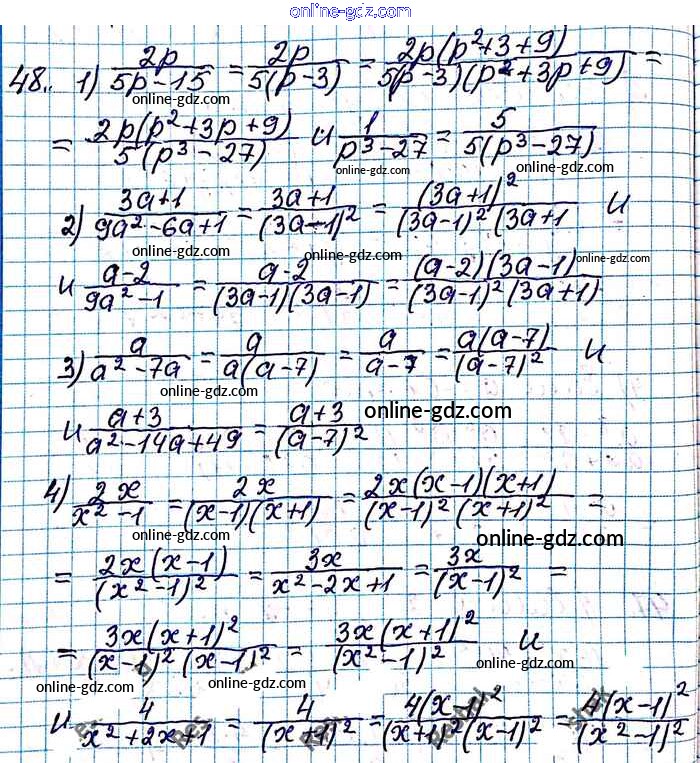 online-gdz.com
48.. 1) 2p/(5p-15) = 2p/(5(p-3)) = 2p(p²+3+9)/(5(p-3)(p²+3p+9)) =
online-gdz.com
= 2p(p²+3p+9)/(5(p³-27)) и 1/(p³-27) = 5/(5(p³-27))
online-gdz.com online-gdz.com
2) (3a+1)/(9a²-6a+1) = (3a+1)/(3a-1)² = (3a+1)²/((3a-1)²(3a+1 и
online-gdz.com online-gdz.com
и (a-2)/(9a²-1) = (a-2)/((3a-1)(3a-1)) = (a-2)(3a-1)/((3a-1)²(3a+1)
online-gdz.com
3) a/(a²-7a) = a/(a(a-7)) = a/(a-7) = a(a-7)/(a-7)² и
online-gdz.com
и (a+3)/(a²-14a+49) = (a+3)/(a-7)²
online-gdz.com
4) 2x/(x²-1) = 2x/((x-1)(x+1)) = 2x(x-1)(x+1)/((x-1)²(x+1)²) =
online-gdz.com online-gdz.com
= 2x(x-1)/(x²-1)² = 3x/(x²-2x+1) = 3x/(x-1)² =
online-gdz.com
= 3x(x+1)²/((x-1)²(x-1)²) = 3x(x+1)²/(x²-1)² и
online-gdz.com online-gdz.com
и 4/(x²+2x+1) = 4/(x+1)² = 4(x-1)²/((x+1)²(x-1)²) = 4(x-1)²/(x²-1)²